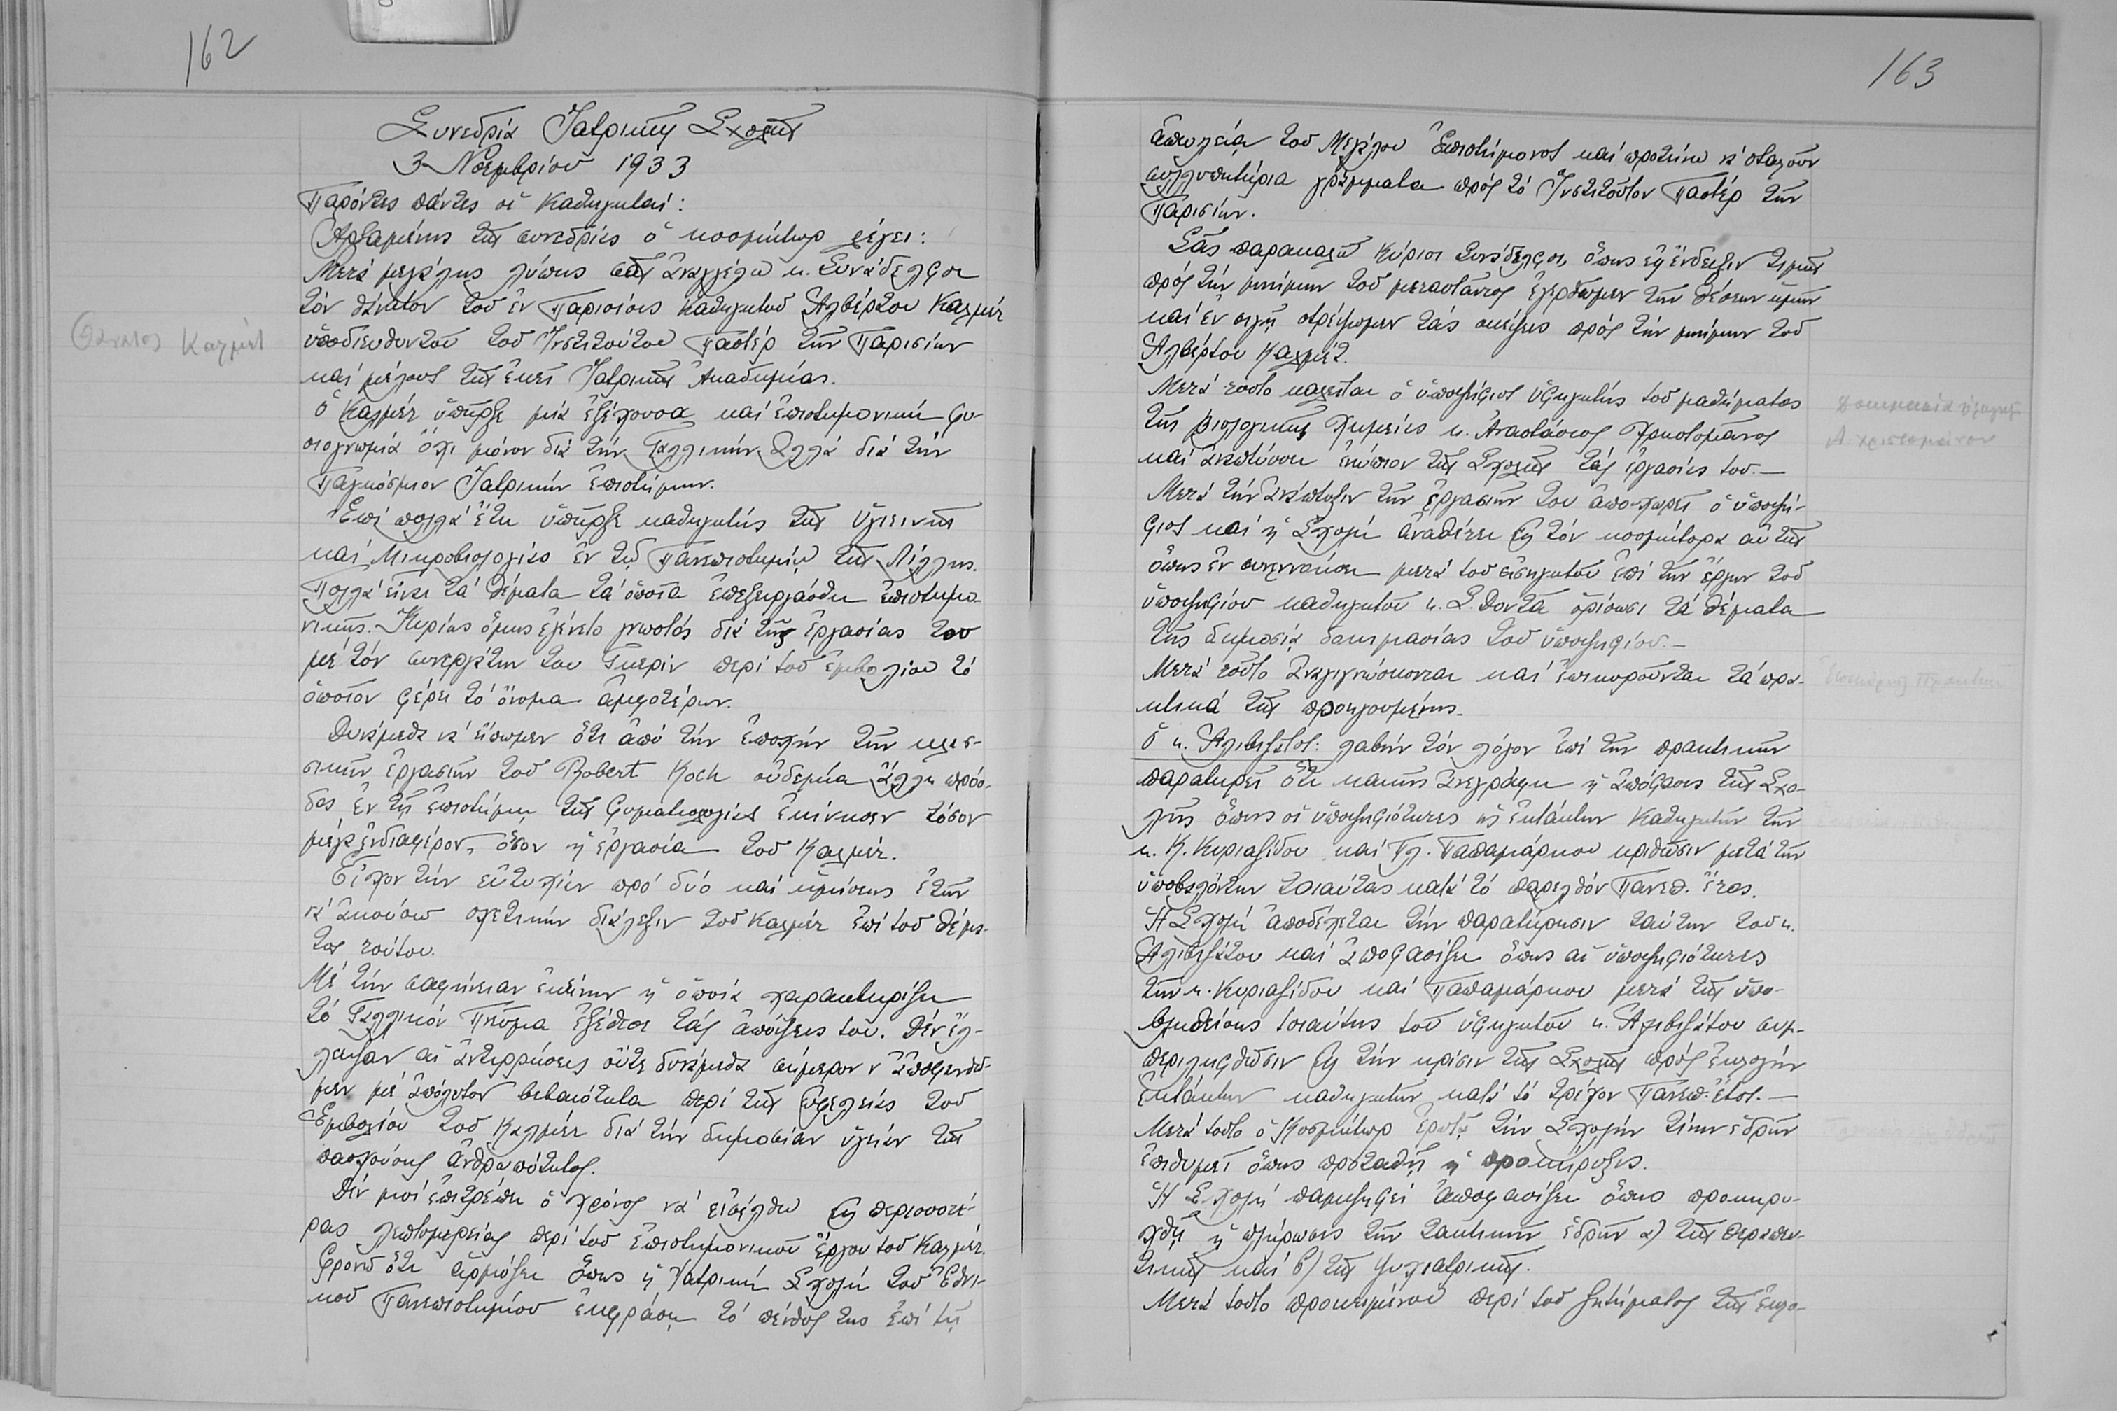 162
Συνεδρία Ἰατρικῆς Σχολῆς
3 Νοεμβρίου 1933
Παρόντες πάντες οἱ καθηγηταί:
Ἀρξαμένης τῆς συνεδρίας ὁ κοσμήτωρ λέγει:
Μετά μεγάλης λύπης σᾶς ἀναγγέλω κ. Συνάδελφοι
τόν θάνατον τοῦ ἐν Παρισίοις καθηγητοῦ Ἀλβέρτου Καλμέτ
Θάνατος Καλμέτ
ὑποδιευθυντοῦ τοῦ Ἰνστιτούτου Παστέρ τῶν Παρισίων
καί μέλους τῆς ἐκεῖ Ἰατρικῆς Ἀκαδημίας.
Ὁ Καλμέτ ὑπῆρξε μία ἐξέχουσα καί ἐπιστημονική φυ-
σιογνωμία ὄχι μόνον διά τήν Γαλλικήν ἀλλά διά τήν
Παγκόσμιον Ἰατρικήν ἐπιστήμην.
Ἐπί πολλά ἔτη ὑπῆρξε καθηγητής τῆς ὑγιεινῆς
καί Μικροβιολογίας ἐν τῷ Πανεπιστημίῳ τῆς Λίλλης.
Πολλά εἶναι τά θέματα τά ὁποῖα ἐπεξειργάσθη ἐπιστημο
νικῆς. Κυρίως ὅμως ἐγένετο γνωστός διά τῆς ἐργασίας του
μέ τόν συνεργάτην του Γκερίν περί τοῦ ἐμβολίου τό
ὁποῖον φέρει τό ὄνομα ἀμφοτέρων.
Δυνάμεθα νά εἴπωμεν ὅτι ἀπό τήν ἐποχήν τῶν κλασ-
σικῶν ἐργασιῶν τοῦ Robert Koch οὐδεμία ἄλλη πρόο-
δος ἐν τῇ ἐπιστήμῃ τῆς φυματιολογίας ἐκίνησεν τόσον
μέγα ἐνδιαφέρον, ὅσον ἡ ἐργασία τοῦ Καλμέτ.
Εἶχον τήν εὐτυχίαν πρό δύο καί ἡμίσεως ἐτῶν
νά ἀκούσω σχετικήν διάλεξιν τοῦ Καλμέτ ἐπί τοῦ θέμα-
τος τούτου.
Μέ τήν σαφήνειαν ἐκείνην ἡ ὁποία χαρακτηρίζει
τό Γαλλικόν Πνεῦμα ἐξέθεσε τάς ἀπόψεις του. Δέν ἔλ-
λειψαν αἱ ἀντιρρήσεις οὔτε δυνάμεθα σήμερον ν' ἀποφανθῶ-
μεν μέ ἀπόλυτον βεβαιότητα περί τῆς ὠφελείας τοῦ
Ἐμβολίου τοῦ Καλμέτ διά τήν δημοσίαν ὑγείαν τῆς
πασχούσης ἀνθρωπότητος.
Δέν μοί ἐπιτρέπει ὁ χρόνος νά εἰσέλθω εἰς περισσοτέ-
ρας λεπτομερείας περί τοῦ ἐπιστημονικοῦ ἔργου τοῦ Καλμέτ.
Φρονῶ ὅτι ἁρμόζει ὅπως ἡ Ἰατρική Σχολή τοῦ Ἐθνι-
κοῦ Πανεπιστημίου ἐκφράσῃ τό πένθος της ἐπί τῇ
163
ἀπωλείᾳ τοῦ Μεγάλου Ἐπιστήμονος καί προτείνω νά σταλοῦν
συλλυπητήρια γράμματα πρός τό Ἰνστιτοῦτον Παστέρ τῶν
Παρισίων.
Σᾶς παρακαλῶ Κύριοι Συνάδελφοι, ὅπως εἰς ἔνδειξιν τιμῆς
πρός τήν μνήμην τοῦ μεταστάντος ἐγερθῶμεν τῶν θέσεων ἡμῶν
καί ἐν σιγῇ στρέψωμεν τάς σκέψεις πρός τήν μνήμην τοῦ
Ἀλβέρτου Καλμέτ.
Μετά τοῦτο καλεῖται ὁ ὑποψήφιος ὑφηγητής τοῦ μαθήματος
Δοκιμασία ὑφηγητ.
τῆς Βιολογικῆς Χημείας κ. Ἀναστάσιος Χρηστομάνος
Α. Χριστομάνου
καί ἀναπτύσσει ἐνώπιον τῆς Σχολῆς τάς ἐργασίας του.—
Μετά τήν ἀνάπτυξιν τῶν ἐργασιῶν του ἀποχωρεῖ ὁ ὑποψή-
φιος καί ἡ Σχολή ἀναθέτει εἰς τόν κοσμήτορα αὐτῆς
ὅπως ἐν συνεννοήσει μετά τοῦ εἰσηγητοῦ ἐπί τῶν ἔργων τοῦ
ὑποψηφίου καθηγητοῦ κ. Σ. Δοντᾶ ὁρίσωσι τά θέματα
τῆς δημοσίᾳ δοκιμασίας τοῦ ὑποψηφίου.—
Μετά τοῦτο ἀναγιγνώσκονται καί ἐπικυροῦνται τά πρα-
κτικά τῆς προηγουμένης.
Ὁ κ. Ἀλιβιζᾶτος: λαβών τόν λόγον ἐπί τῶν πρακτικῶν
παρατηρεῖ ὅτι κακῶς ἀνεγράφη ἡ ἀπόφασις τῆς Σχο-
λῆς ὅπως οἱ ὑποψηφιότητες ὡς ἐκτάκτων καθηγητῶν τῶν
κ. Κ. Κυριαζίδου καί Γλ. Παπαμάρκου κριθῶσιν μετά τῶν
ὑποβληθέντων τοιαύτας κατά τό παρελθόν Πανεπ. ἔτος.
Ἡ Σχολή ἀποδέχεται τήν παρατήρησιν ταύτην τοῦ κ.
Ἀλιβιζάτου καί ἀποφασίζει ὅπως αἱ ὑποψηφιότητες
τῶν κ. Κυριαζίδου καί Παπαμάρκου μετά τῆς ὑπο-
βληθείσης τοιαύτης τοῦ ὑφηγητοῦ κ. Ἀλιβιζάτου συμ-
περιληφθῶσιν εἰς τήν κρίσιν τῆς Σχολῆς πρός ἐκλογήν
ἐκτάκτων καθηγητῶν κατά τό τρέχον Πανεπ. ἔτος.—
Μετά τοῦτο ὁ Κοσμήτωρ ἐρωτᾷ τήν Σχολήν τίνων ἑδρῶν
ἐπιθυμεῖ ὅπως προταθῇ ἡ προκήρυξις.
Ἡ Σχολή παμψηφεί ἀποφασίζει ὅπως προκηρυ-
χθῇ ἡ πλήρωσις τῶν τακτικῶν ἑδρῶν α) τῆς Θεραπευ-
τικῆς καί β) τῆς Ψυχιατρικῆς.
Μετά τοῦτο προκειμένου περί τοῦ ζητήματος τῆς ἐκλο-